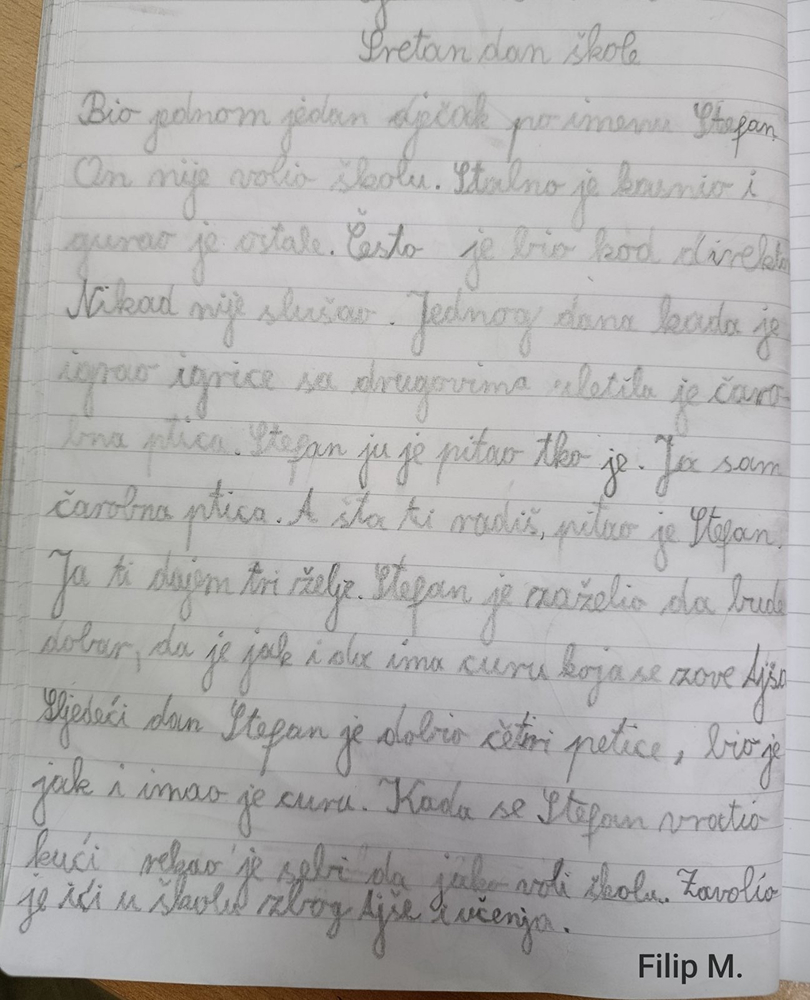 Sretan dan škole
Bio jednom jedan dječak po imenu Stefan
On nije volio školu. Stalno je kasnio i
gurao je ostale. Često je bio kod direkto
Nikad nije slušao. Jednog dana kada je
igrao igrice sa drugovima uletila je čaro-
bna ptica. Stefan ju je pitao tko je. Ja sam
čarobna ptica. A šta ti radiš, pitao je Stefan.
Ja ti dajem tri želje. Stefan je zaželio da bude
dobar, da je jak i da ima curu koja se zove Ajša
Sljedeći dan Stefan je dobio četri petice, bio je
jak i imao je curu. Kada se Stefan vratio
kući rekao je sebi da jako voli školu. Zavolio
je ići u školu zbog Ajše i učenja.
Filip M.